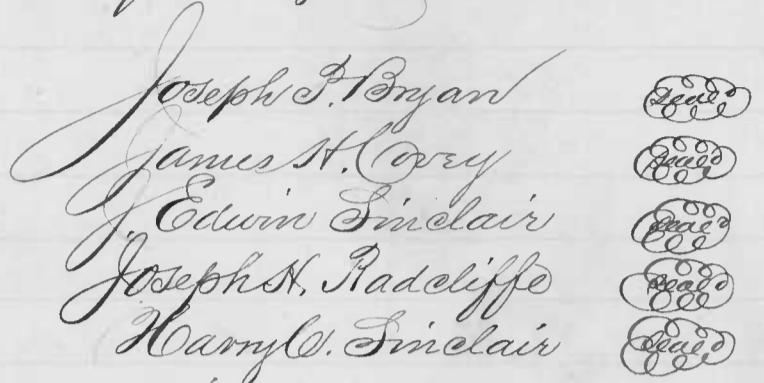 Joseph P. Bryan Seal
James H. Covey Seal
J. Edwin Sinclair Seal
Joseph H. Radcliffe Seal
Harry C. Sinclair Seal